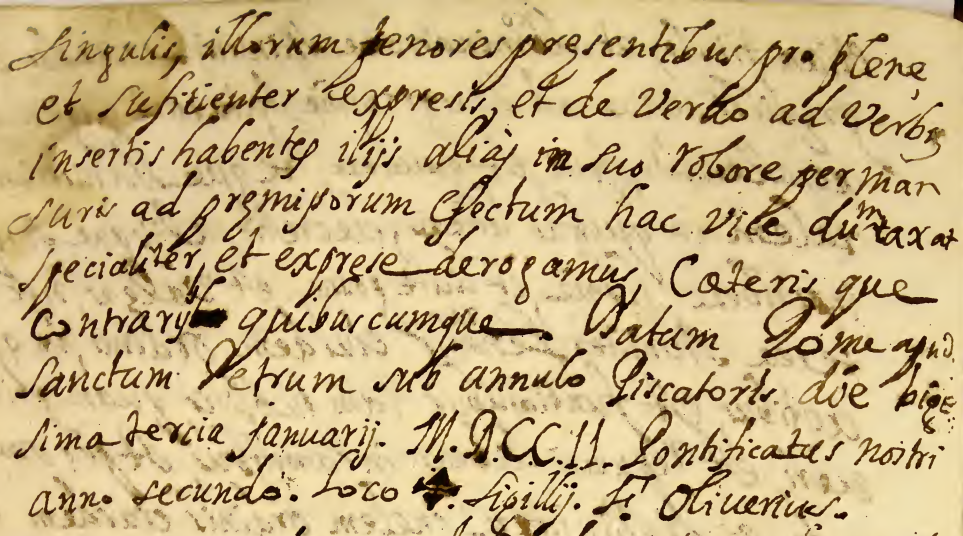 singulis, illorum tenores presentibus pro plene
et sufitienter expresis, et de verbo ad verbũ
insertis habentes illjs alias in suo robore perman
suris ad premisorum efectum hac vice dumtaxat
specialiter, et exprese derogamus, Cæteris que
contrarijs quibuscumque. Datum Rome apud
Sanctum Petrum sub annulo Piscatoris die bige
sima tercia januarij. M.D.CC.II. Pontificatus nostri
anno secundo. Loco ✠. Sigillj. F. Oliuerius.